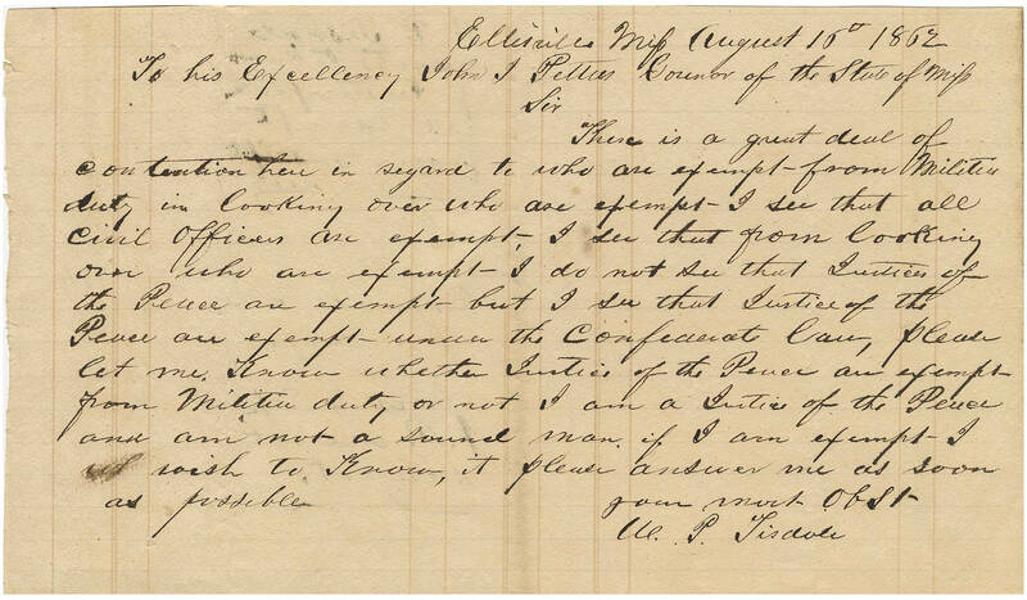 Ellisville Miss August 15th 1862
To his Excellency John J Pettus Govenor of the State of Miss
Sir
There is a great deal of
contention here in regard to who are exempt from Militia
duty in looking over who are exempt I see that all
Civil Officers are exempt, I see that from looking
over who are exempt I do not see that Justices of
the Peace are exempt but I see that Justice of the
Peace are exempt under the Confederate Law, please
let me Know whether Justices of the Peace are exempt
from Militia duty or not I am a Justice of the Peace
and am not a sound man if I am exempt I
wish to Know, it please answer me as soon
as possible your most Obst
P. Tisdale